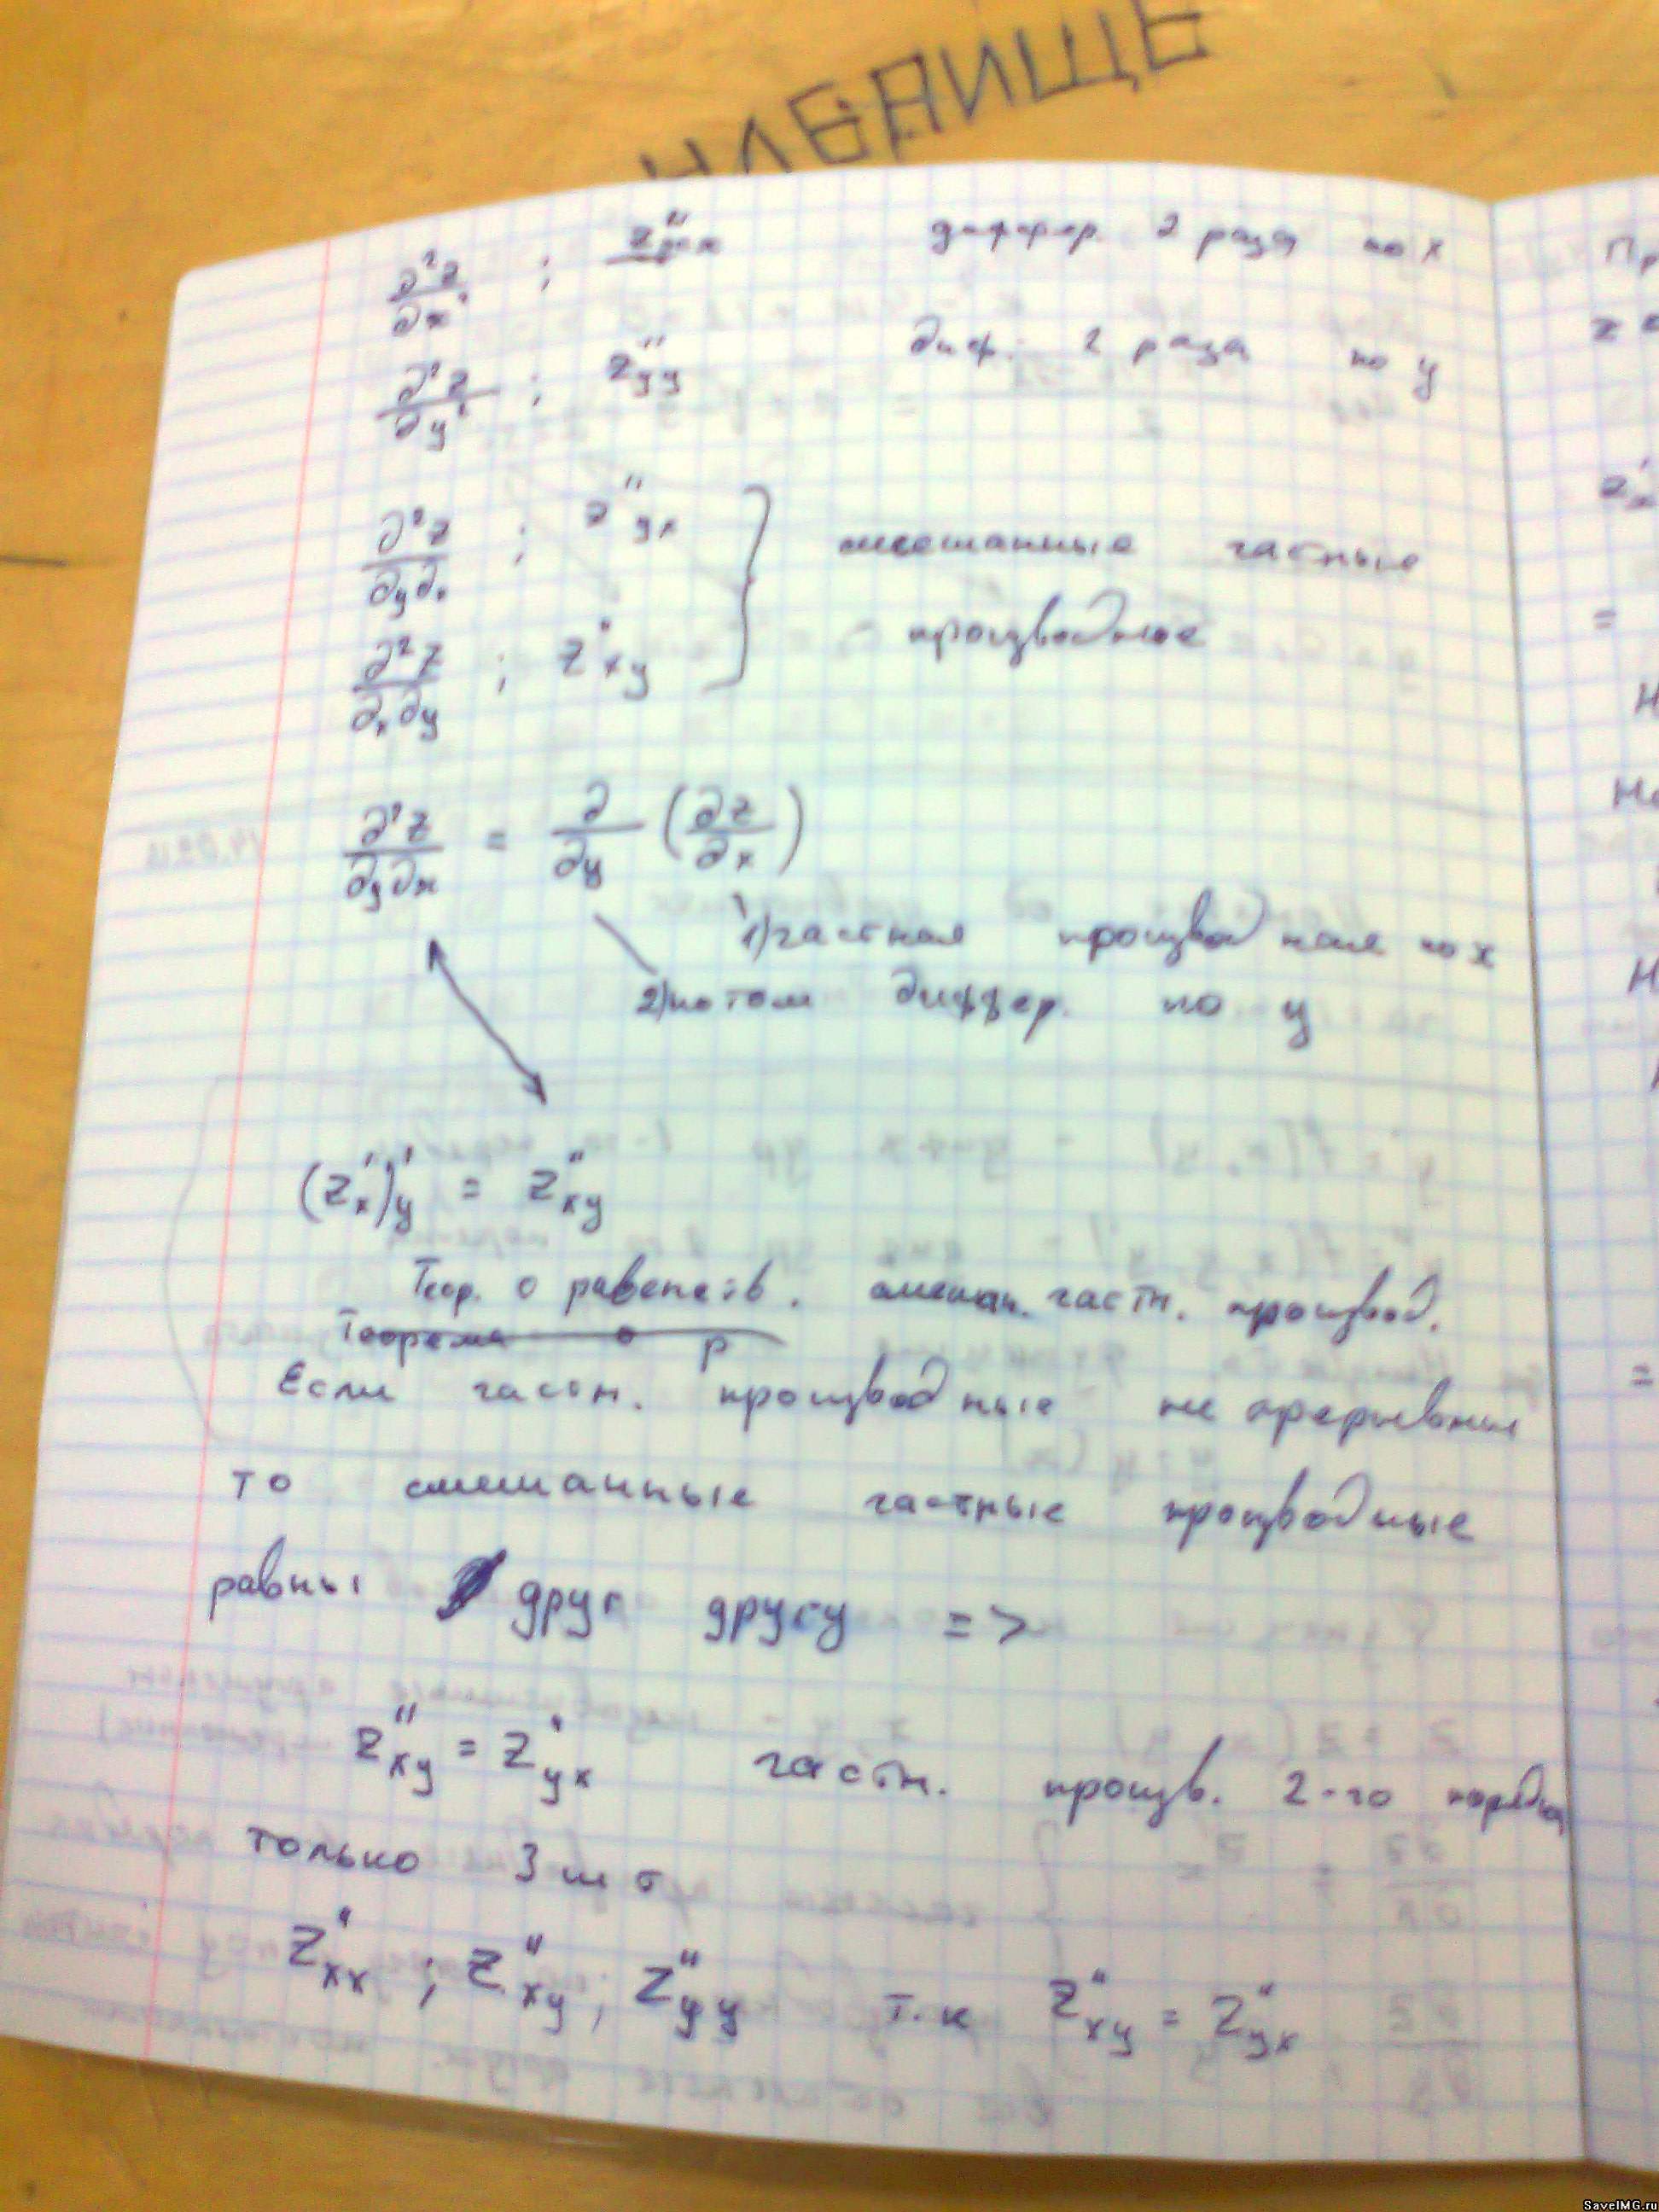 КЛЕВИЩЕ
∂²z/∂x² ; z''xx диффер. 2 раза по x
∂²z/∂y² ; z''yy диф. 2 раза по y
∂²z/∂y∂x ; z''yx } смешанные частные
∂²z/∂x∂y ; z''xy производные
∂²z/∂y∂x = ∂/∂y (∂z/∂x)
1) частная производная по x
2) потом диффер. по y
(z'x)'y = z''xy
Теор. о равенств. смешан. частн. производ.
Теорема о р
Если частн. производные не прерывные
то смешанные частные производные
равны друг другу =>
z''xy = z''yx частн. произв. 2-го порядка
только 3 шт
z''xx ; z''xy ; z''yy т.к z''xy = z''yx
Пр
z =
z'x
=
Н
Но
Н
=
SaveIMG.ru